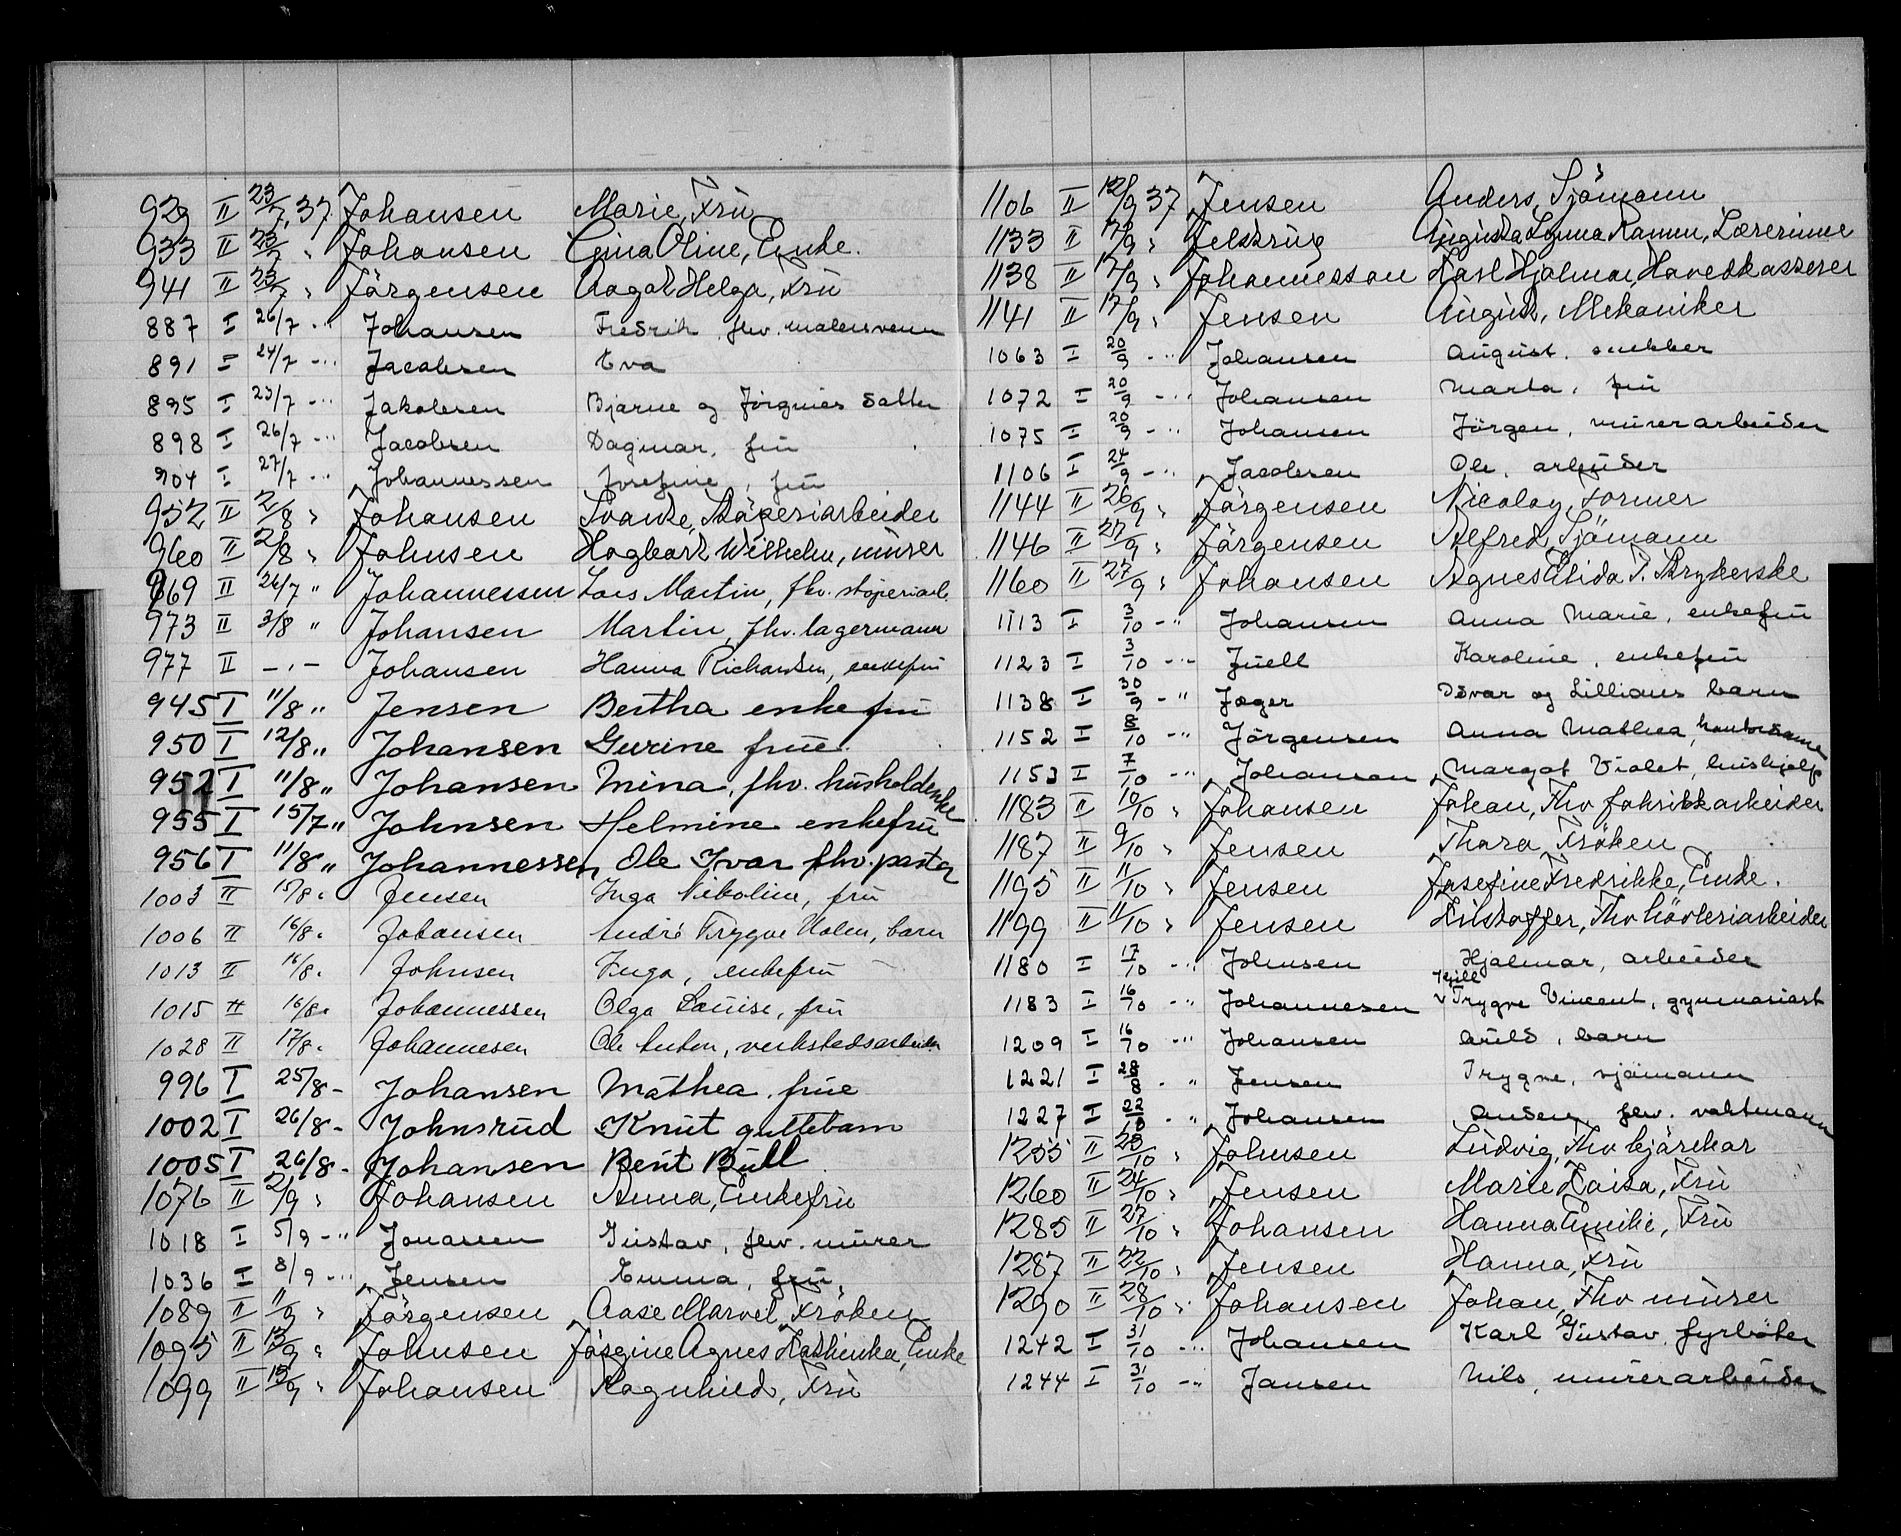 929 II 23/7 37 Johansen Marie, Fru
933 II 23/7 " Johansen Oline, Enke.
941 II 23/7 " Jörgensen Aagot Helga, Fru
887 I 26/7 -"- Johansen Fredrik fhv. malersvenn
891 I 24/7 -"- Jacobsen Eva
895 I 23/7 -"- Jakobsen Bjarne og Jørgines datter
898 I 26/7 -"- Jacobsen Dagmar, fru
904 I 27/7 -"- Johannessen Josefine, fru
952 II 2/8 " Johansen Svante, Støperiarbeider
960 II 2/8 " Johnsen Hagbart Wilhelm, murer
969 II 26/7 " Johannessen Lars Martin, fhv. støperiarb.
973 II 3/8 " Johansen Martin, fhv. lagermann
977 II -"- Johansen Hanna Richardsen, enkefru
945 I 11/8 " Jensen Bertha enkefru
950 I 12/8 " Johansen Gurine frue.
952 I 11/8 " Johansen Mina, fhv. husholderske
955 I 15/7 " Johnsen Helmine enkefru
956 I 11/8 " Johannessen Ole Ivar fhv. pastor
1003 II 15/8 " Jensen Inga Nikoline, fru
1006 II 16/8 " Johansen André Trygve Holm, barn
1013 II 16/8 " Johnsen Inga, enkefru
1015 II 16/8 " Johannessen Olga Louise, fru
1028 II 17/8 " Johannesen Ole Anton, verkstedsarbeider
996 I 25/8 - Johansen Mathea frue
1002 I 26/8 - Johnsrud Knut guttebarn
1005 I 26/8 - Johansen Bent Bull
1076 II 2/9 " Johansen Anna, Enkefru
1018 I 5/9 -"- Jonassen Gustav, fhv. murer
1036 I 8/9 -"- Jensen Emma, fru
1089 II 11/9 " Jörgensen Aase Marvel, Fröken
1095 II 13/9 " Johnsen Agnes Kathinka, Enke
1099 II 13/9 " Johansen Ragnhild, Fru
1106 II 12/9 37 Jensen Anders, Sjömann
1133 II 17/9 " Jelstrup Augusta Ramm, Lærerinne
1138 II 17/9 " Johannesson Karl Hjalmar, Hovedkasserer
1141 II 17/9 " Jensen August, Mekaniker
1063 I 20/9 -"- Johansen August, snekker
1072 I 20/9 -"- Johansen Marta, fru
1075 I 20/9 -"- Johansen Jörgen, murerarbeider
1106 I 24/9 -"- Jacobsen Ole, arbeider
1144 II 26/9 " Jörgensen Nicolay, Former
1146 II 27/9 " Jörgensen Alfred, Sjömann
1160 II 27/9 " Johansen Agnes Alida T. Strykerske
1113 I 3/10 -"- Johansen Anna Marie, enkefru
1123 I 3/10 -"- Juell Karoline, enkefru
1138 I 30/9 -"- Jæger Osvar og Lillians barn
1152 I 8/10 -"- Jörgensen Anna Mathea, kontordame
1153 I 7/10 -"- Johansen Margot Violet, hushjelp
1183 II 10/10 " Johansen Johan, Fhv fabrikkarbeider
1187 II 9/10 " Jensen Thora Fröken
1195 II 11/10 " Jensen Josefine Fredrikke, Enke.
1199 II 11/10 " Jensen Kristoffer, Fhv hövleriarbeider
1180 I 17/10 -"- Johnsen Hjalmar, arbeider
1183 I 16/10 -"- Johannesen Kjell Trygve Vincent, gymnasiast
1209 I 16/10 -"- Johansen Arild, barn
1221 I 28/8 -"- Jensen Trygve, sjömann
1227 I 22/10 -"- Johansen Anders, fhv. vaktmann
1255 II 23/10 " Johnsen Ludvig, Fhv kjörekar
1260 II 24/10 " Jensen Marie Kaisa, Fru
1285 II 27/10 " Johansen Hanna Emilie, Fru
1287 II 22/10 " Jensen Hanna, Fru
1290 II 28/10 " Johansen Johan, Fhv murer
1242 I 31/10 -"- Johansen Karl Gustav, fyrböter
1244 I 31/10 -"- Jansen Nils, murerarbeider